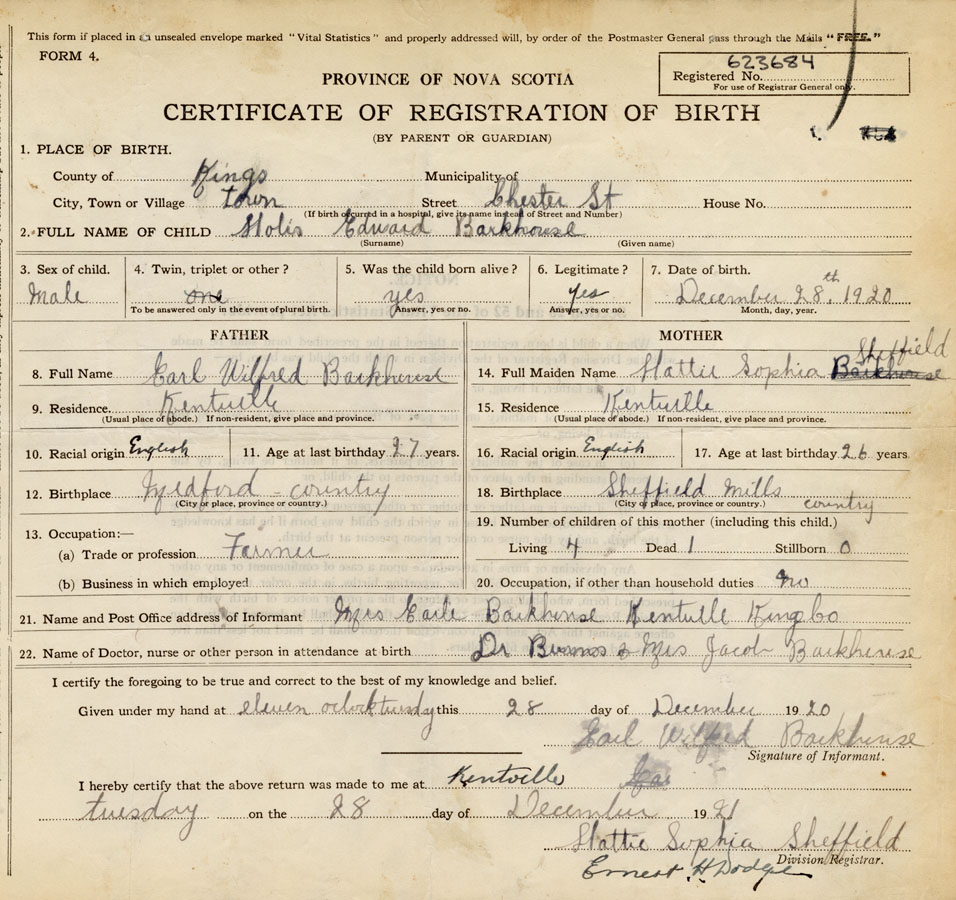 This form if placed in an unsealed envelope marked "Vital Statistics" and properly addressed will, by order of the Postmaster General pass through the Mails "FREE."
FORM 4.
623684
Registered No.
For use of Registrar General only.
PROVINCE OF NOVA SCOTIA
CERTIFICATE OF REGISTRATION OF BIRTH
(BY PARENT OR GUARDIAN)
1. PLACE OF BIRTH.
County of Kings Municipality of
City, Town or Village Town Street Chester St House No.
(If birth occurred in a hospital, give its name instead of Street and Number)
2. FULL NAME OF CHILD Holis Edward Barkhouse
(Surname) (Given name)
3. Sex of child. 4. Twin, triplet or other? 5. Was the child born alive? 6. Legitimate? 7. Date of birth.
Male one yes yes December 28th, 1920
To be answered only in the event of plural birth. Answer, yes or no. Answer, yes or no. Month, day, year.
FATHER MOTHER
Sheffield
8. Full Name Earl Wilfred Barkhouse 14. Full Maiden Name Hattie Sophia Barkhouse
9. Residence. Kentville 15. Residence Kentville
(Usual place of abode.) If non-resident, give place and province. (Usual place of abode.) If non-resident, give place and province.
10. Racial origin English 11. Age at last birthday 27 years. 16. Racial origin English 17. Age at last birthday 26 years.
12. Birthplace Medford - country 18. Birthplace Sheffield Mills country
(City or place, province or country.) (City or place, province or country.)
13. Occupation:— 19. Number of children of this mother (including this child.)
(a) Trade or profession Farmer Living 4 Dead 1 Stillborn 0
(b) Business in which employed 20. Occupation, if other than household duties no
21. Name and Post Office address of Informant Mrs Earle Barkhouse Kentville Kings Co
22. Name of Doctor, nurse or other person in attendance at birth Dr & Mrs Jacob Barkhouse
I certify the foregoing to be true and correct to the best of my knowledge and belief.
Given under my hand at eleven oclock tuesday this 28 day of December 1920
Earl Wilfred Barkhouse
Signature of Informant.
I hereby certify that the above return was made to me at Kentville
tuesday on the 28 day of December 1921
Hattie Sophia Sheffield
Division Registrar.
Ernest H Dodge